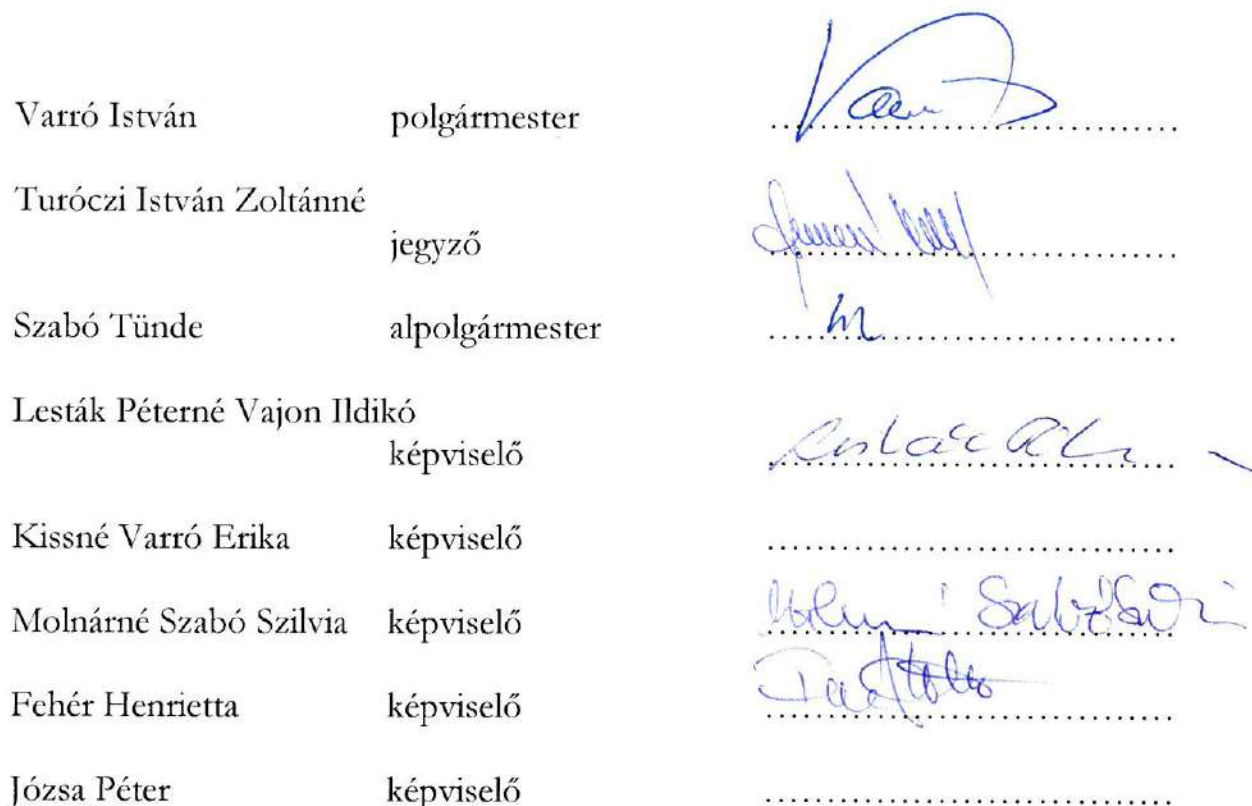 Varró István polgármester ........................................
Turóczi István Zoltánné
jegyző ........................................
Szabó Tünde alpolgármester ........................................
Lesták Péterné Vajon Ildikó
képviselő ........................................
Kissné Varró Erika képviselő ........................................
Molnárné Szabó Szilvia képviselő ........................................
Fehér Henrietta képviselő ........................................
Józsa Péter képviselő ........................................